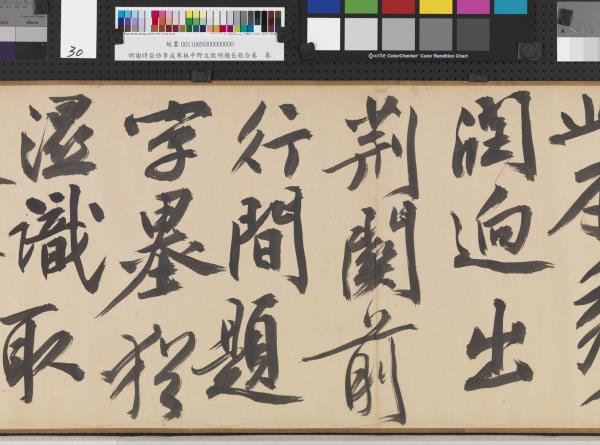 30
Black
故畫 001106N000000000
明謝時臣仿李成寒林平野文徵明題長歌合卷 卷
x-rite ColorChecker Color Rendition Chart
潤迥出
荊關前
行間題
字墨猶
濕識取